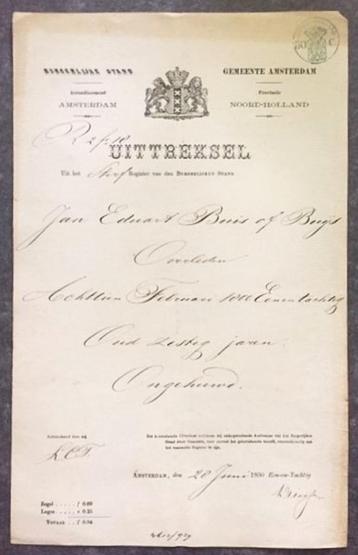 BURGERLIJKE STAND
Arrondissement
AMSTERDAM
GEMEENTE AMSTERDAM
Provincie
NOORD-HOLLAND
R 2 f. 18
UITTREKSEL
Uit het Sterf Register van den BURGERLIJKEN STAND
Jan Eduart Buis of Buys
Overleden
Achttien Februari 1800 Eenentachtig
Oud zestig jaren.
Ongehuwd.
AMSTERDAM, den 28 Juni 1880 Eenen-Tachtig
Zegel f 0.69
Leges 0.25
TOTAAL f 0.94